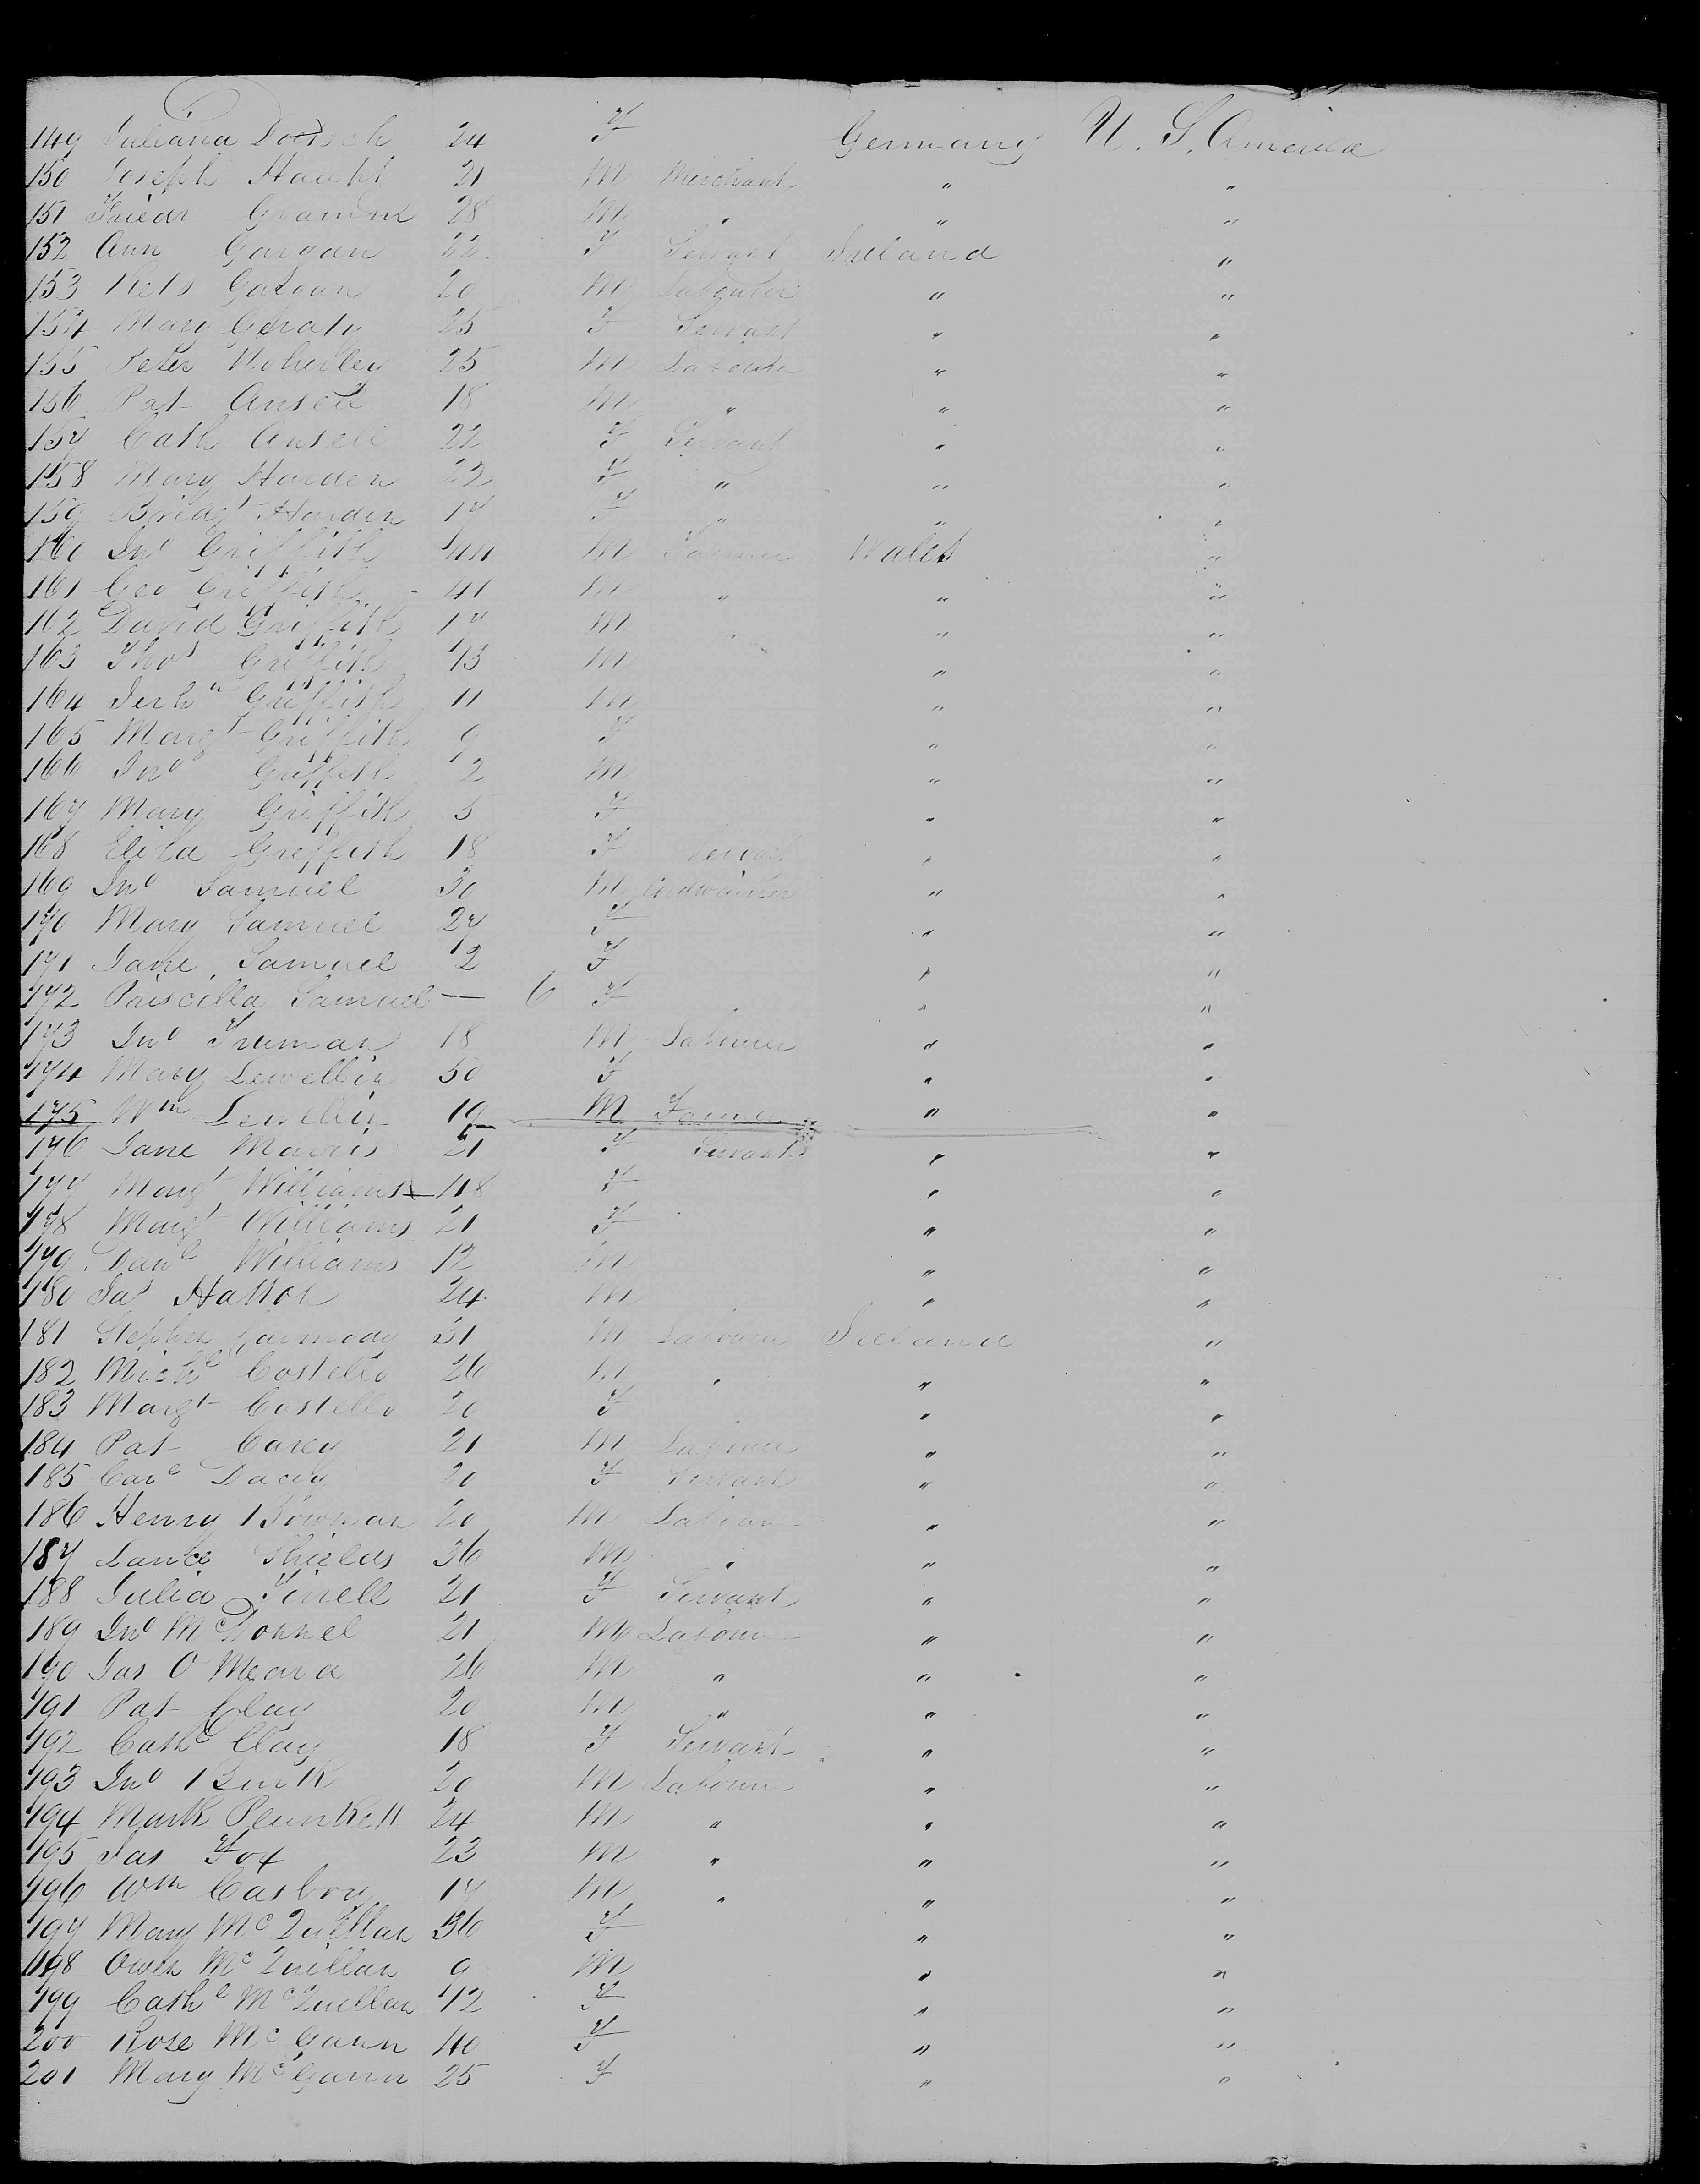 149 Juliana 24 F Germany U. S. America
150 Joseph Haupt 21 M Merchant " "
151 Friedr Gramm 28 M " " "
152 Ann Gargan 22 F Servant Ireland "
153 Gargan 20 M Labourer " "
154 Mary Geraty 25 F Servant " "
155 Peter 25 M Labourer " "
156 Pat Ansell 18 M " " "
157 Cath Ansell 22 F Servant " "
158 Mary Harden 22 F " " "
159 Bridgt Harden 17 F " " "
160 Jno Griffith 44 M Farmer Wales "
161 Geo Griffith 41 M " " "
162 David Griffith 17 M " " "
163 Thos Griffith 13 M " "
164 Griffith 11 M " "
165 Margt Griffith 9 F " "
166 Jno Griffith 2 M " "
167 Mary Griffith 5 F " "
168 Eliza Griffith 18 F Servant " "
169 Jno Samuel 30 M Cordwainer " "
170 Mary Samuel 27 F " "
171 Jane Samuel 2 F " "
172 Priscilla Samuel — 6 F " "
173 Jno Truman 18 M Labourer " "
174 Mary Lewellin 50 F " "
175 Wm Lewellin 19 M Farmer " "
176 Jane Morris 21 F Servant " "
177 Margt Williams 48 F " "
178 Margt Williams 21 F " "
179 Danl Williams 12 M " "
180 Jas Hatton 24 M " "
181 Stephen Garmody 31 M Labourer Ireland "
182 Michl Costello 26 M " " "
183 Margt Costello 20 F " "
184 Pat Carey 21 M Labourer " "
185 Dacey 20 F Servant " "
186 Henry Bowman 20 M Labour " "
187 Lance Shields 36 M " " "
188 Julia Tirrell 21 F Servant " "
189 Jno McDonnel 21 M Labour " "
190 Jas O Meara 26 M " " "
191 Pat Clay 20 M " " "
192 Cathe Clay 18 F Servant " "
193 Jno Burk 20 M Labourer " "
194 Mark Plunkett 24 M " " "
195 Jas Fox 23 M " " "
196 Wm Casbory 17 M " " "
197 Mary McQuillan 36 F " "
198 Owen McQuillan 9 M " "
199 Cathe McQuillan 12 F " "
200 Rose McGann 40 F " "
201 Mary McGann 25 F " "